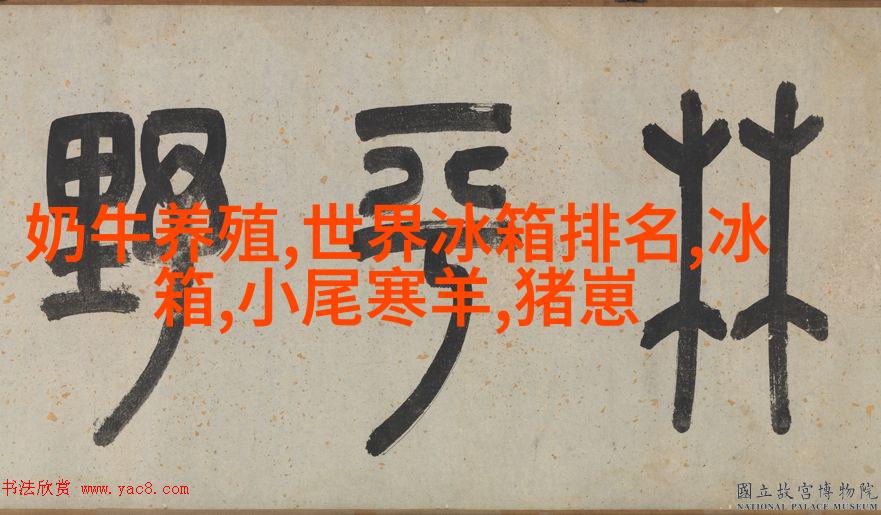 林平野
奶牛养殖,世界冰箱排名,冰
箱,小尾寒羊,猪崽
书法欣赏 www.yac8.com
國立故宮博物院
NATIONAL PALACE MUSEUM